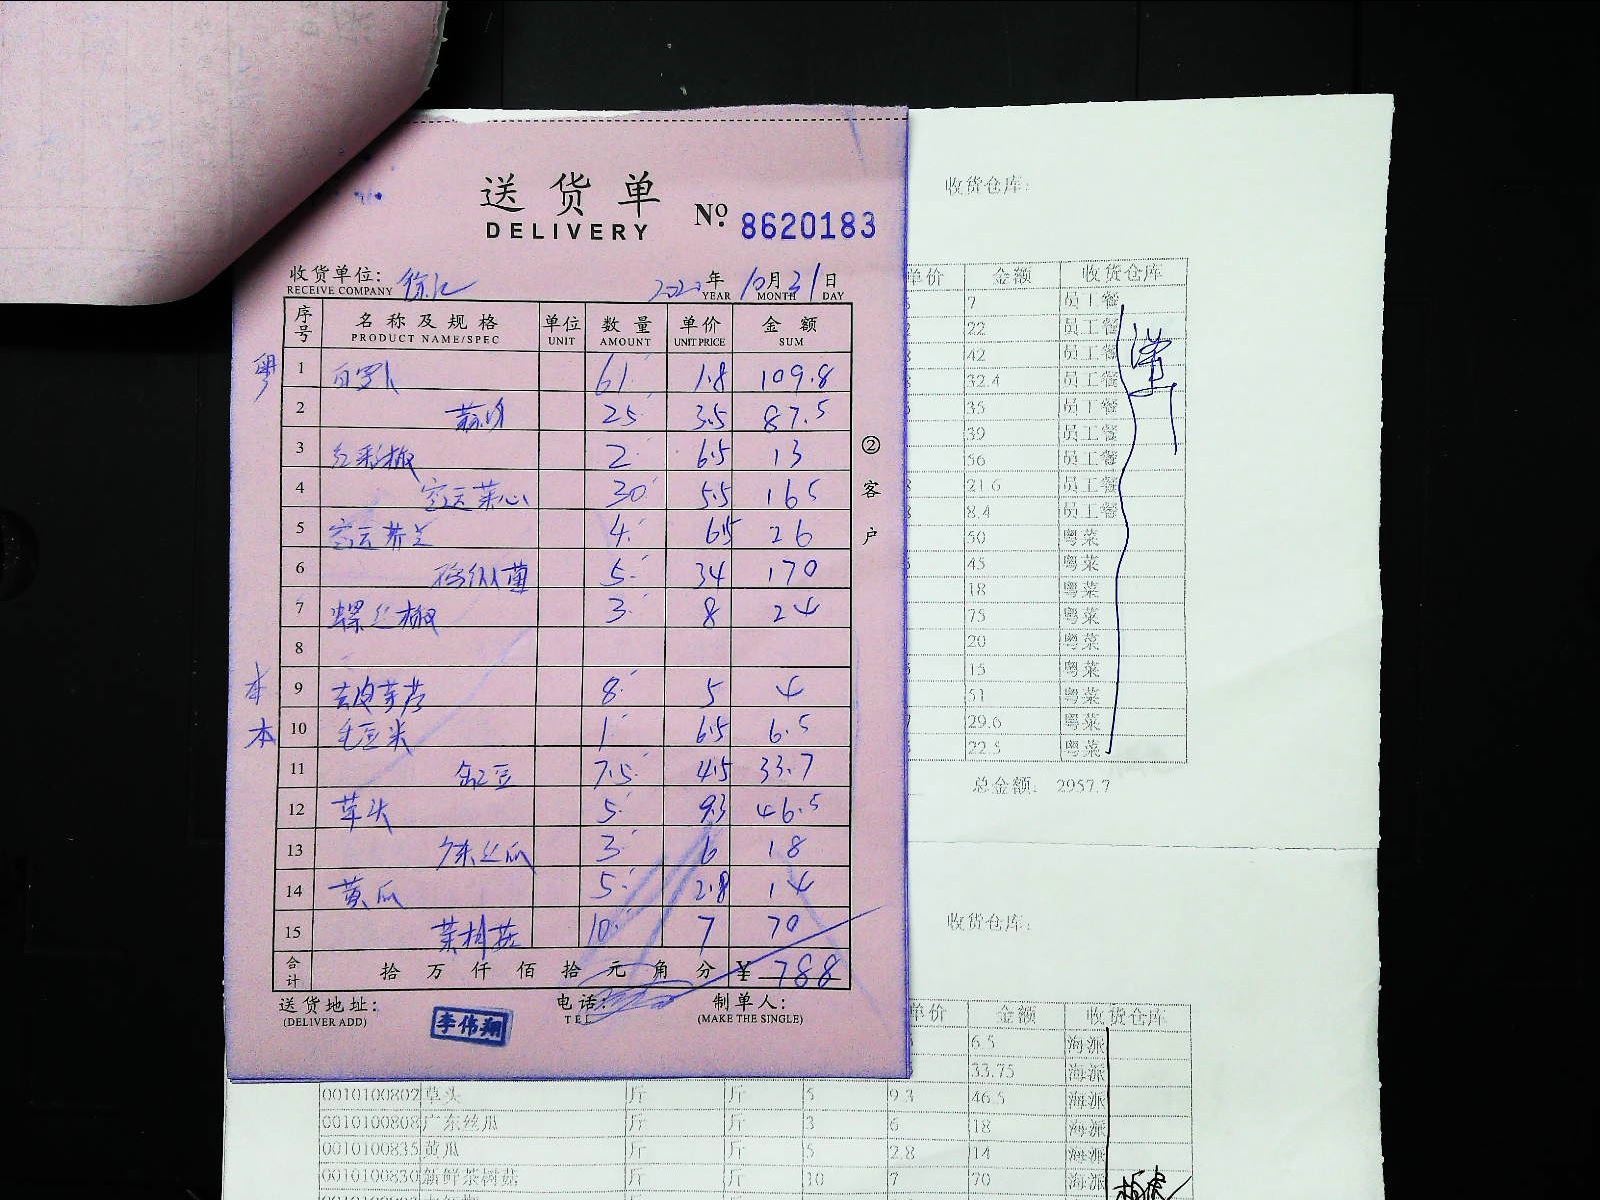 送货单
DELIVERY
№ 8620183
收货单位: 徐汇 2020年10月31日
RECEIVE COMPANY YEAR MONTH DAY
序号 名称及规格 单位 数量 单价 金额
PRODUCT NAME/SPEC UNIT AMOUNT UNIT PRICE SUM
粤 1 白罗卜 61 1.8 109.8
2 25 3.5 87.5
3 红彩椒 2 6.5 13
4 空运菜心 30 5.5 165
5 空运芥兰 4 6.5 26
6 5 34 170
7 螺丝椒 3 8 24
8
本 9 去皮芋艿 8 5 4
本 10 毛豆米 1 6.5 6.5
11 缸豆 7.5 4.5 33.7
12 草头 5 9.3 46.5
13 广东丝瓜 3 6 18
14 黄瓜 5 2.8 14
15 茶树菇 10 7 70
合计 拾 万 仟 佰 拾 元 角 分 ¥ 788
送货地址: 电话: 制单人:
(DELIVER ADD) TEL (MAKE THE SINGLE)
李伟翔
②客户
收货仓库:
单价 金额 收货仓库
7 员工餐
22 员工餐
42 员工餐
32.4 员工餐
35 员工餐
39 员工餐
56 员工餐
21.6 员工餐
8.4 员工餐
50 粤菜
45 粤菜
18 粤菜
75 粤菜
20 粤菜
15 粤菜
51 粤菜
29.6 粤菜
22.5 粤菜
总金额: 2957.7
收货仓库:
单价 金额 收货仓库
6.5 海派
33.75 海派
0010100802 草头 斤 斤 5 9.3 46.5 海派
0010100808 广东丝瓜 斤 斤 3 6 18 海派
0010100835 黄瓜 斤 斤 5 2.8 14 海派
0010100830 新鲜茶树菇 斤 斤 10 7 70 海派